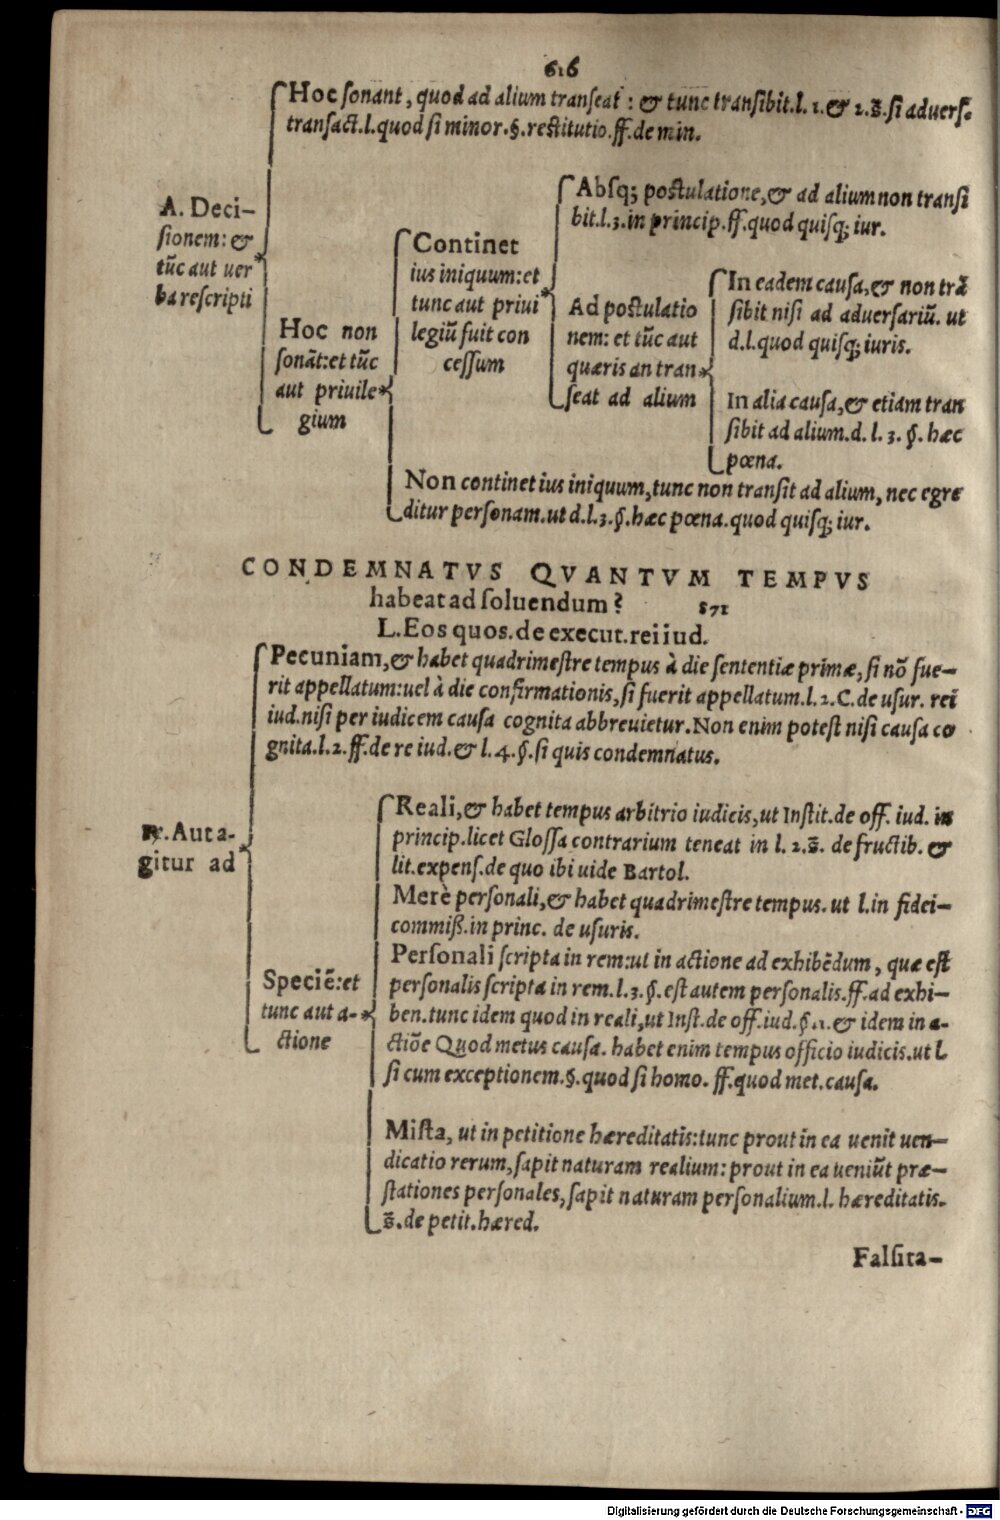 616
Hoc sonant, quod ad alium transeat: & tunc transibit. l. 1. & 2. s̄. si advers.
transact. l. quod si minor. §. restitutio. ff. de min.
A. Deci-
sionem: &
tūc aut uer
ba rescripti
Hoc non
sonāt: et tūc
aut priuile
gium
Continet
ius iniquum: et
tunc aut priui
legiū fuit con
cessum
Absq; postulatione, & ad alium non transi
bit. l. 3. in princip. ff. quod quisq; iur.
Ad postulatio
nem: et tūc aut
quæris an tran
seat ad alium
In eadem causa, & non trā
sibit nisi ad aduersariū. ut
d. l. quod quisq; iuris.
In alia causa, & etiam tran
sibit ad alium. d. l. 3. §. hæc
pœna.
Non continet ius iniquum, tunc non transit ad alium, nec egre
ditur personam. ut d. l. 3. §. hæc pœna. quod quisq; iur.
CONDEMNATVS QVANTVM TEMPVS
habeat ad soluendum? 871
L. Eos quos. de execut. rei iud.
Pecuniam, & habet quadrimestre tempus à die sententiæ primæ, si nō fue-
rit appellatum: uel à die confirmationis, si fuerit appellatum. l. 2. C. de usur. rei
iud. nisi per iudicem causa cognita abbreuietur. Non enim potest nisi causa co
gnita. l. 2. ff. de re iud. & l. 4. §. si quis condemnatus.
R̃. Aut a-
gitur ad
Speciē: et
tunc aut a-
ctione
Reali, & habet tempus arbitrio iudicis, ut Instit. de off. iud. in
princip. licet Glossa contrarium teneat in l. 2. s̄. de fructib. &
lit. expens. de quo ibi uide Bartol.
Merè personali, & habet quadrimestre tempus. ut l. in fidei-
commiß. in princ. de usuris.
Personali scripta in rem: ut in actione ad exhibēdum, quæ est
personalis scripta in rem. l. 3. §. est autem personalis. ff. ad exhi-
ben. tunc idem quod in reali, ut Inst. de off. iud. §. 1. & idem in a-
ctiōe Quod metus causa. habet enim tempus officio iudicis. ut l.
si cum exceptionem. §. quod si homo. ff. quod met. causa.
Mista, ut in petitione hæreditatis: tunc prout in ea uenit uen-
dicatio rerum, sapit naturam realium: prout in ea ueniūt præ-
stationes personales, sapit naturam personalium. l. hæreditatis.
s̄. de petit. hæred.
Falsita-
Digitalisierung gefördert durch die Deutsche Forschungsgemeinschaft - DFG